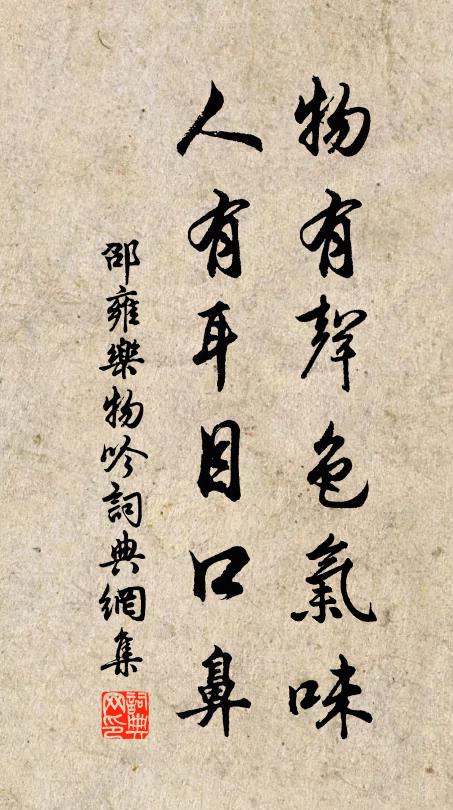 物有聲色氣味
人有耳目口鼻
邵雍樂物吟詞典網集
詞典
网印